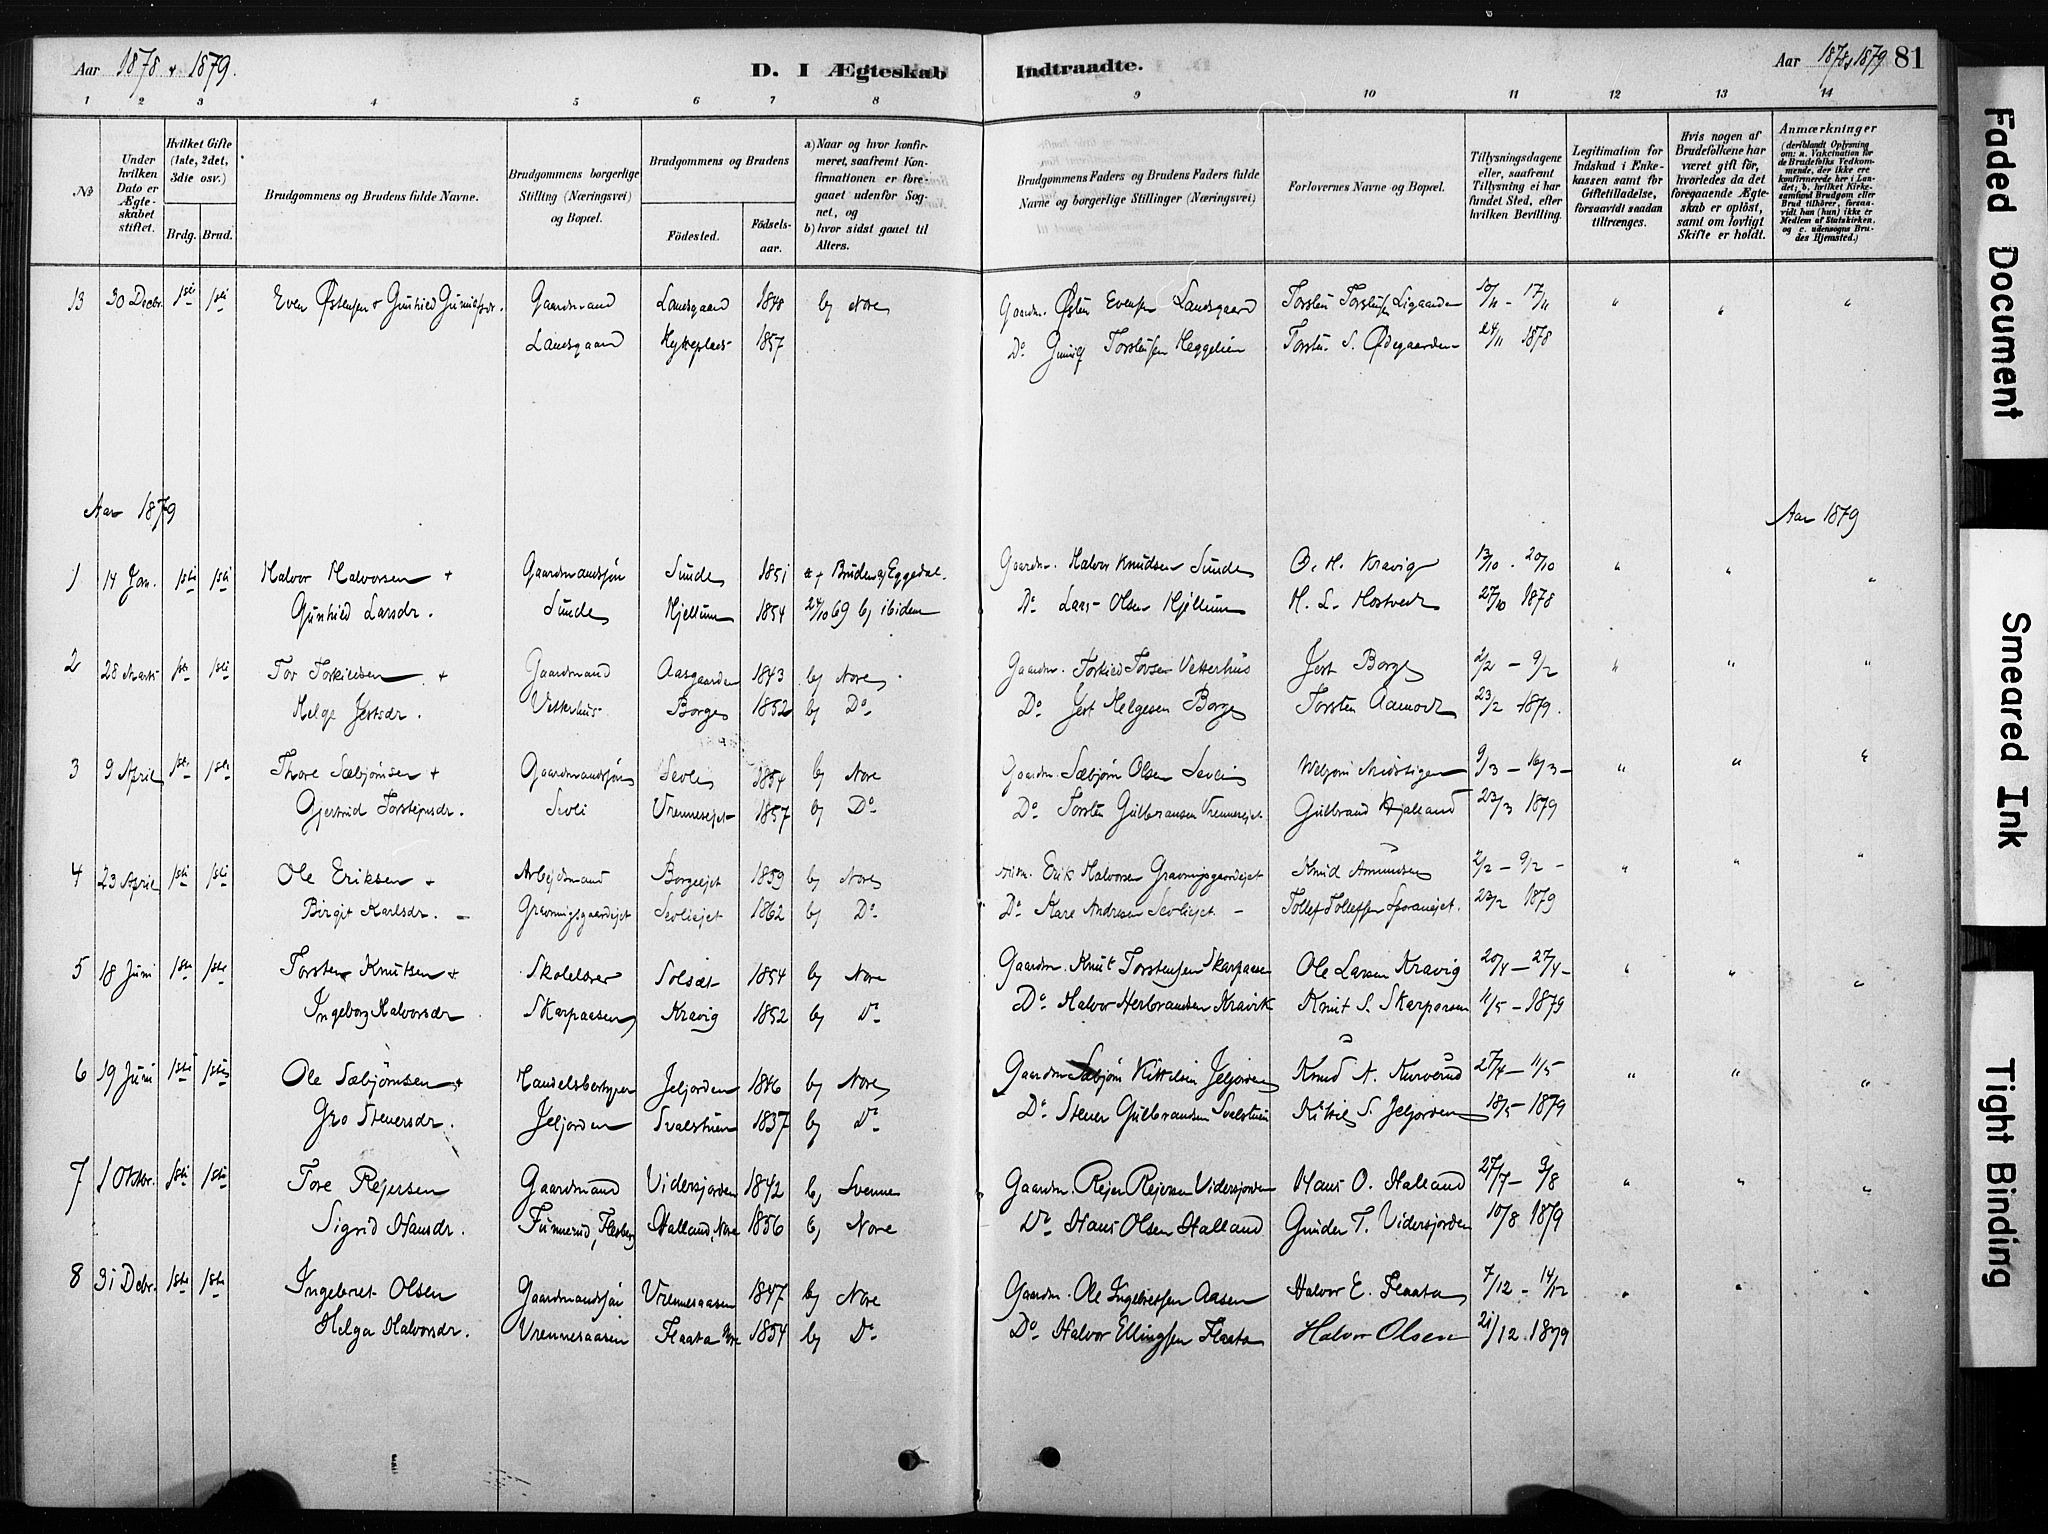 Aar 1878 & 1879.
D. I Ægteskab Indtraadte.
Aar 1878 & 1879 81
1 2 3 4 5 6 7 8 9 10 11 12 13 14
No
Under hvilken Dato er Ægteskabet stiftet.
Hvilket Gifte (1ste, 2det, 3die osv.)
Brdg. Brud.
Brudgommens og Brudens fulde Navne.
Brudgommens borgerlige Stilling (Næringsvei) og Bopæl.
Brudgommens og Brudens
Fødested. Fødselsaar.
a) Naar og hvor konfirmeret, saafremt Konfirmationen er foregaaet udenfor Sognet, og
b) hvor sidst gaaet til Alters.
Brudgommens Faders og Brudens Faders fulde Navne og borgerlige Stillinger (Næringsvei)
Forlovernes Navne og Bopæl.
Tillysningsdagene eller, saafremt Tillysning ei har fundet Sted, efter hvilken Bevilling.
Legitimation for Indskud i Enkekassen samt for Giftetilladelse, forsaavidt saadan tiltrænges.
Hvis nogen af Brudefolkene har været gift før, hvorledes da det foregaaende Ægteskab er opløst, samt om lovligt Skifte er holdt.
Anmærkninger (deriblandt Oplysning om: a. Vakcination for de Brudefolks Vedkommende, der ikke ere konfirmerede her i Landet; b. hvilket Kirkesamfund Brudgom eller Brud tilhører, forsaavidt han (hun) ikke er Medlem af Statskirken, og c. udensogns Brudes Hjemsted.)
13 30 Decbr. 1ste 1ste Even Østensen & Gunhild Gunulfsdr. Gaardmand Landsgaard 1848 b) Nore Gaardm. Østen Evensen Landsgaard Torsten Torstensen Ligaarden 10/11 - 17/11 " " "
Landsgaard 1857 Do Gunulf Torstensen Heggelien Torsten S. Ødegaarden 24/11 1878
Aar 1879 Aar 1879
1 14 Jan. 1ste 1ste Halvor Halvorsen + Gaardmandssøn Sunde 1851 a + Bruden af Eggedal. Gaardm. Halvor Knudsen Sunde O. H. Kravig 13/10 . 20/10 " " "
Gunhild Larsdr. Sunde Hjellum 1854 24/10 69 b) ibidem Do Lars Olsen Hjellum H. L. Hostvedt 27/10 1878
2 28 Marts 1ste 1ste Tov Torkildsen + Gaardmand Aasgaarden 1843 b) Nore Gaardm. Torkild Tovsen Vetterhus Jost Borge 2/2 - 9/2 " " "
Helge Jostsdr. Vetterhus Borge 1852 b) Do Do Jost Helgesen Borge Torsten Aamodt 23/2 1879.
3 9 April 1ste 1ste Thore Sæbjørnsen + Gaardmandssøn Sevli 1854 b) Nore Gaardm. Sæbjørn Olsen Sevli 9/3 - 16/3 - " " "
Gjertrud Torstensdr. Sevli Vrenneejet 1857 b) Do Do Torsten Gulbransen Vrenneejet Gulbrand Hjalland 23/3 1879
4 23 April 1ste 1ste Ole Eriksen + Arbejdsmand Borgeejet 1859 b) Nore Erik Halvorsen Gravningsgaardejet Knud Amundsen 2/2 - 9/2 - " " "
Birgit Karlsdr. - Gravningsgaardejet Sevliejet 1862 b) Do Do Kare Andresen Sevliejet - Tollef Tollefsen 23/2 1879
5 18 Juni 1ste 1ste Torsten Knutsen + Skolelærer Solsæt 1854 b) Nore Gaardm. Knut Torstensen Skarpaasen Ole Larsen Kravig 20/4 - 27/4 - " " "
Ingeborg Halvorsdr Skarpaasen Kravig 1852 b) Do Do Halvor Herbrandsen Kravik Knut S. Skarpaasen 11/5 - 1879
6 19 Juni 1ste 1ste Ole Sæbjørnsen + Handelsbestyrer Jeljorden 1846 b) Nore Gaardm. Sæbjørn Kittilsen Jeljorden Knud A. Kurverud 27/4 - 11/5 " " "
Gro Steversdr. Jeljorden Svalstuen 1837 b) Do Do Stever Gulbrandsen Svalstuen Kittil S. Jeljorden 18/5 - 1879
7 1 Oktbr. 1ste 1ste Tore Rejersen Gaardmand Vidersjorden 1842 b) Svenne Gaardm. Rejer Rejersen Vidersjorden Hans O. Halland 27/7 - 3/8 " " "
Sigrid Hansdr. Funnerud, Flesberg Halland, Nore 1856 b) Nore Do Hans Olsen Halland Gunder T. Vidersjorden 10/8 1879
8 31 Debr. 1ste 1ste Ingebret Olsen Gaardmandssøn Vrenneaasen 1847 b) Nore Gaardm. Ole Ingebretsen Aasen Halvor E. Flaata 7/12 - 14/12 " " "
Helga Halvorsdr. Vrenneaasen Flaata Nore 1854 b) Do Do Halvor Ellingsen Flaata Halvor Olsen 21/12 . 1879
Faded Document
Smeared Ink
Tight Binding